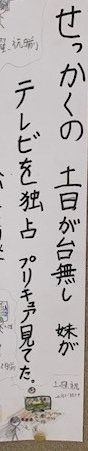 せっかくの 土日が台無し 妹が
テレビを独占 プリキュア見てた。